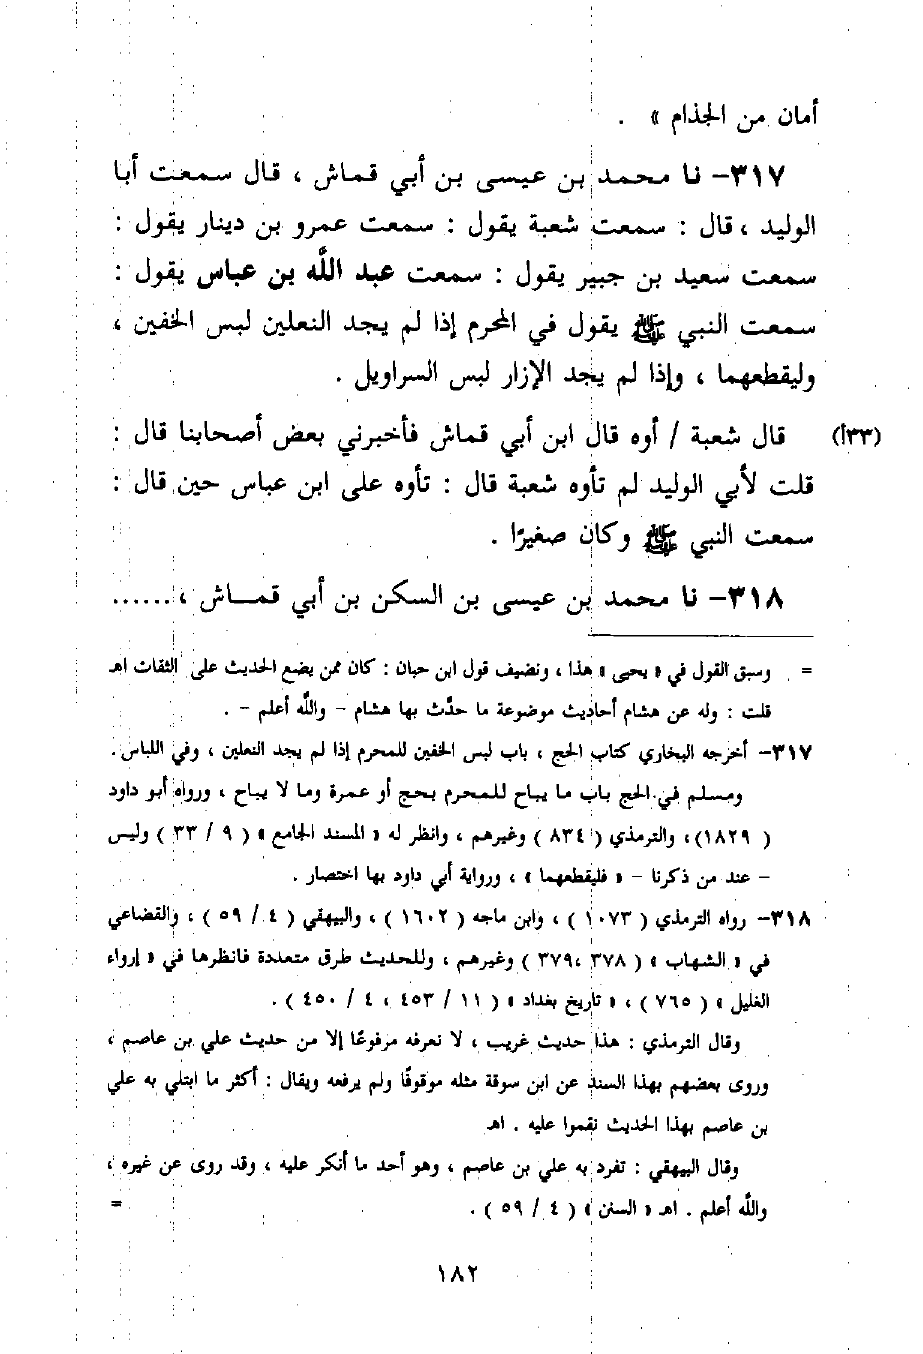 أمان من الجذام » .
٣١٧- نا محمد بن عيسى بن أبي قماش ، قال سمعت أبا
الوليد ، قال : سمعت شعبة يقول : سمعت عمرو بن دينار يقول :
سمعت سعيد بن جبير يقول : سمعت عبد الله بن عباس يقول :
سمعت النبي ﷺ يقول في المحرم إذا لم يجد النعلين لبس الخفين ،
وليقطعهما ، وإذا لم يجد الإزار لبس السراويل .
(٣٣أ) قال شعبة / أوه قال ابن أبي قماش فأخبرني بعض أصحابنا قال :
قلت لأبي الوليد لم تأوه شعبة قال : تأوه على ابن عباس حين قال :
سمعت النبي ﷺ وكان صغيرًا .
٣١٨- نا محمد بن عيسى بن السكن بن أبي قمـاش ، ......
= وسبق القول في « يحيى » هذا ، ونضيف قول ابن حبان : كان ممن يضع الحديث على الثقات اهـ
قلت : وله عن هشام أحاديث موضوعة ما حدَّث بها هشام - والله أعلم - .
٣١٧- أخرجه البخاري كتاب الحج ، باب لبس الخفين للمحرم إذا لم يجد النعلين ، وفي اللباس .
ومسلم في الحج باب ما يباح للمحرم بحج أو عمرة وما لا يباح ، ورواه أبو داود
( ١٨٢٩) ، والترمذي ( ٨٣٤ ) وغيرهم ، وانظر له « المسند الجامع » ( ٩ / ٣٣ ) وليس
- عند من ذكرنا - « فليقطعهما » ، ورواية أبي داود بها اختصار .
٣١٨- رواه الترمذي ( ١٠٧٣ ) ، وابن ماجه ( ١٦٠٢ ) ، والبيهقي ( ٤ / ٥٩ ) ، والقضاعي
في « الشهاب » ( ٣٧٨ ، ٣٧٩ ) وغيرهم ، وللحديث طرق متعددة فانظرها في « إرواء
الغليل » ( ٧٦٥ ) ، « تاريخ بغداد » ( ١١ / ٤٥٣ ، ٤ / ٤٥٠ ) .
وقال الترمذي : هذا حديث غريب ، لا نعرفه مرفوعًا إلا من حديث علي بن عاصم ،
وروى بعضهم بهذا السند عن ابن سوقة مثله موقوفًا ولم يرفعه ويقال : أكثر ما ابتلي به علي
بن عاصم بهذا الحديث نقموا عليه . اهـ
وقال البيهقي : تفرد به علي بن عاصم ، وهو أحد ما أنكر عليه ، وقد روى عن غيره ،
والله أعلم . اهـ « السنن » ( ٤ / ٥٩ ) . =
١٨٢